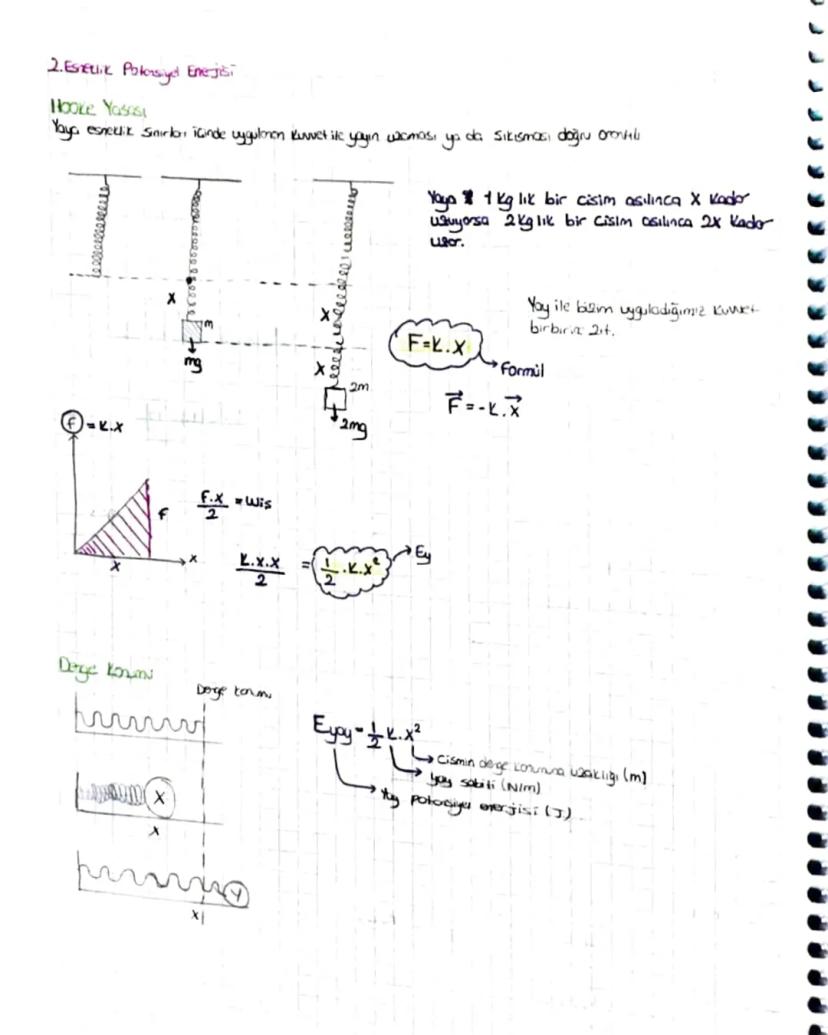 2. Esneklik Potansiyel Enerjisi
Hooke Yasası
Yaya esneklik sınırları içinde uygulanan kuvvet ile yayın uzaması ya da sıkışması doğru orantılı
Yaya 1 kg lık bir cisim asılınca X kadar
uzuyorsa 2 kg lık bir cisim asılınca 2X kadar
uzar.
X
m
mg
X
X
2m
2mg
Yay ile bizim uyguladığımız kuvvet
birbirine zıt.
F=k.X
Formül
F=-k.X
F=k.X
F
x
x
F.x/2 = Wis
k.x.x/2 = 1/2.k.x²
Ey
Denge Konumu
Denge konumu
X
x
Y
x
Eyay=1/2 k.x²
Cismin denge konumuna uzaklığı (m)
yay sabiti (N/m)
Yay potansiyel enerjisi (J)